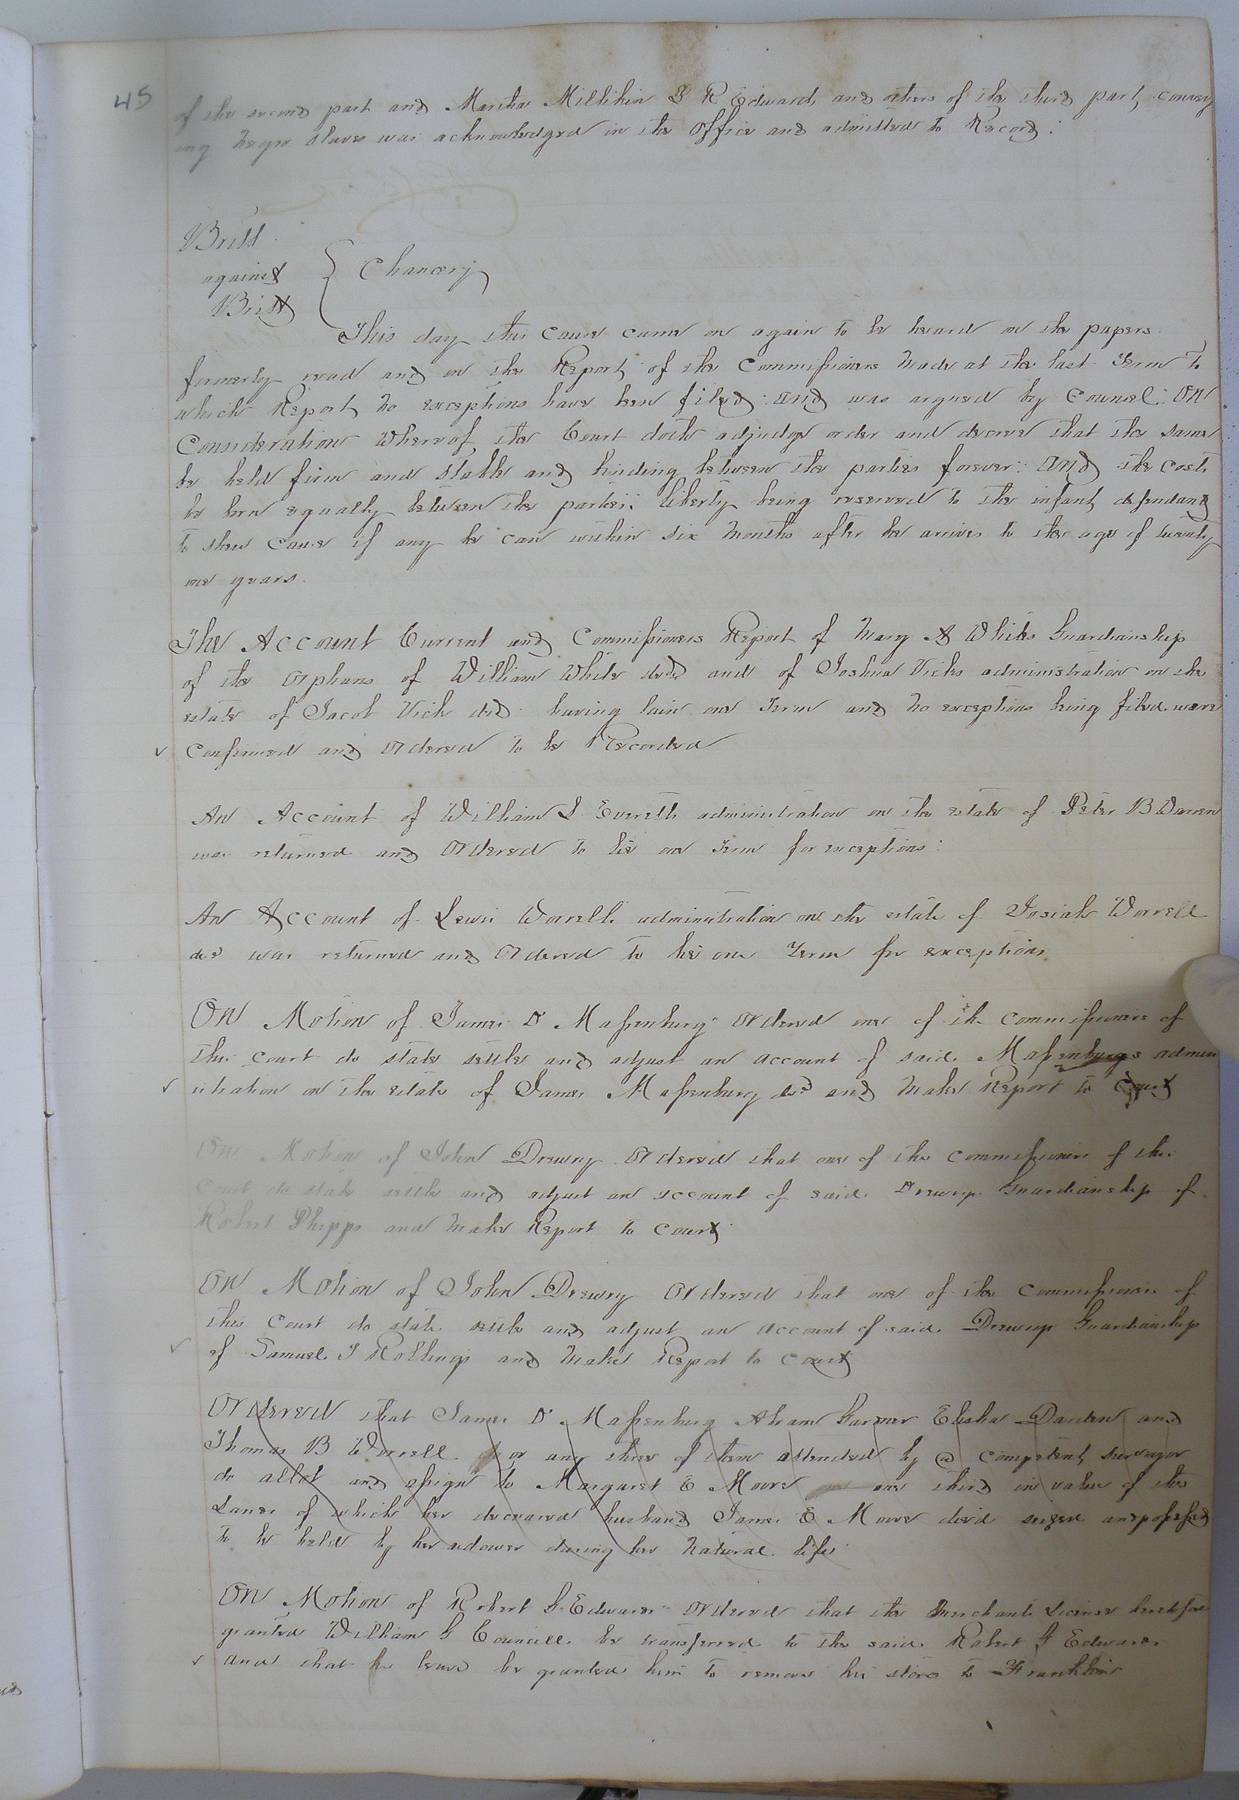 45
of the second part and Martha Millikin & R Edwards and others of the third part, convey
ing Negro Slaves was acknowledged in the Office and admitted to Record:
Britt
against
Britt
Chancery
This day this cause came on again to be heard on the papers
formerly read and on the Report of the Commissioners made at the last Term to
which Report no exceptions have been filed: and was argued by Counsel: On
Consideration whereof the Court doth adjudge order and decree that the same
be held firm and stable and binding between the parties forever: and the costs
be born equally between the parties: liberty being reserved to the infant defendant
to shew cause if any he can within six months after he arrives to the age of twenty
one years.
The Account Current and Commissioners Report of Mary A Whites Guardianship
of the Orphans of William White decd and of Joshua Vicks administration on the
estate of Jacob Vick decd having lain one Term and no exceptions being filed were
Confirmed and Ordered to be Recorded
An Account of William J Everetts administration on the estate of Peter B Darren
was returned and Ordered to lie one Term for exceptions:
An Account of Lewis Worrells administration on the estate of Josiah Worrell
decd was returned and Ordered to lie one Term for exceptions
On Motion of James D Massenburg Ordered one of the commissioners of
this court do state settle and adjust an account of said Massenburgs admin
istration on the estate of James Massenburg decd and make Report to Court
On Motion of John Drewry Ordered that one of the commissioners of this
Court do state settle and adjust an account of said Drewrys Guardianship of
Robert Phipps and make Report to Court
On Motion of John Drewry Ordered that one of the commissioners of
this Court do state settle and adjust an account of said Drewrys Guardianship
of Samuel J Rollings and make Report to Court
Ordered that James D Massenburg Abram Garner Elisha Darden and
Thomas B Worrell or any three of them attended by a competent surveyor
do allot and assign to Margaret E Moore one third in value of the
Lands of which her deceased husband James E Moore died seized and possessed
to be held by her as dower during her natural life
On Motion of Robert G Edwards Ordered that the Merchants License heretofore
granted William G Councill be transferred to the said Robert G Edwards
and that leave be granted him to remove his store to Franklin